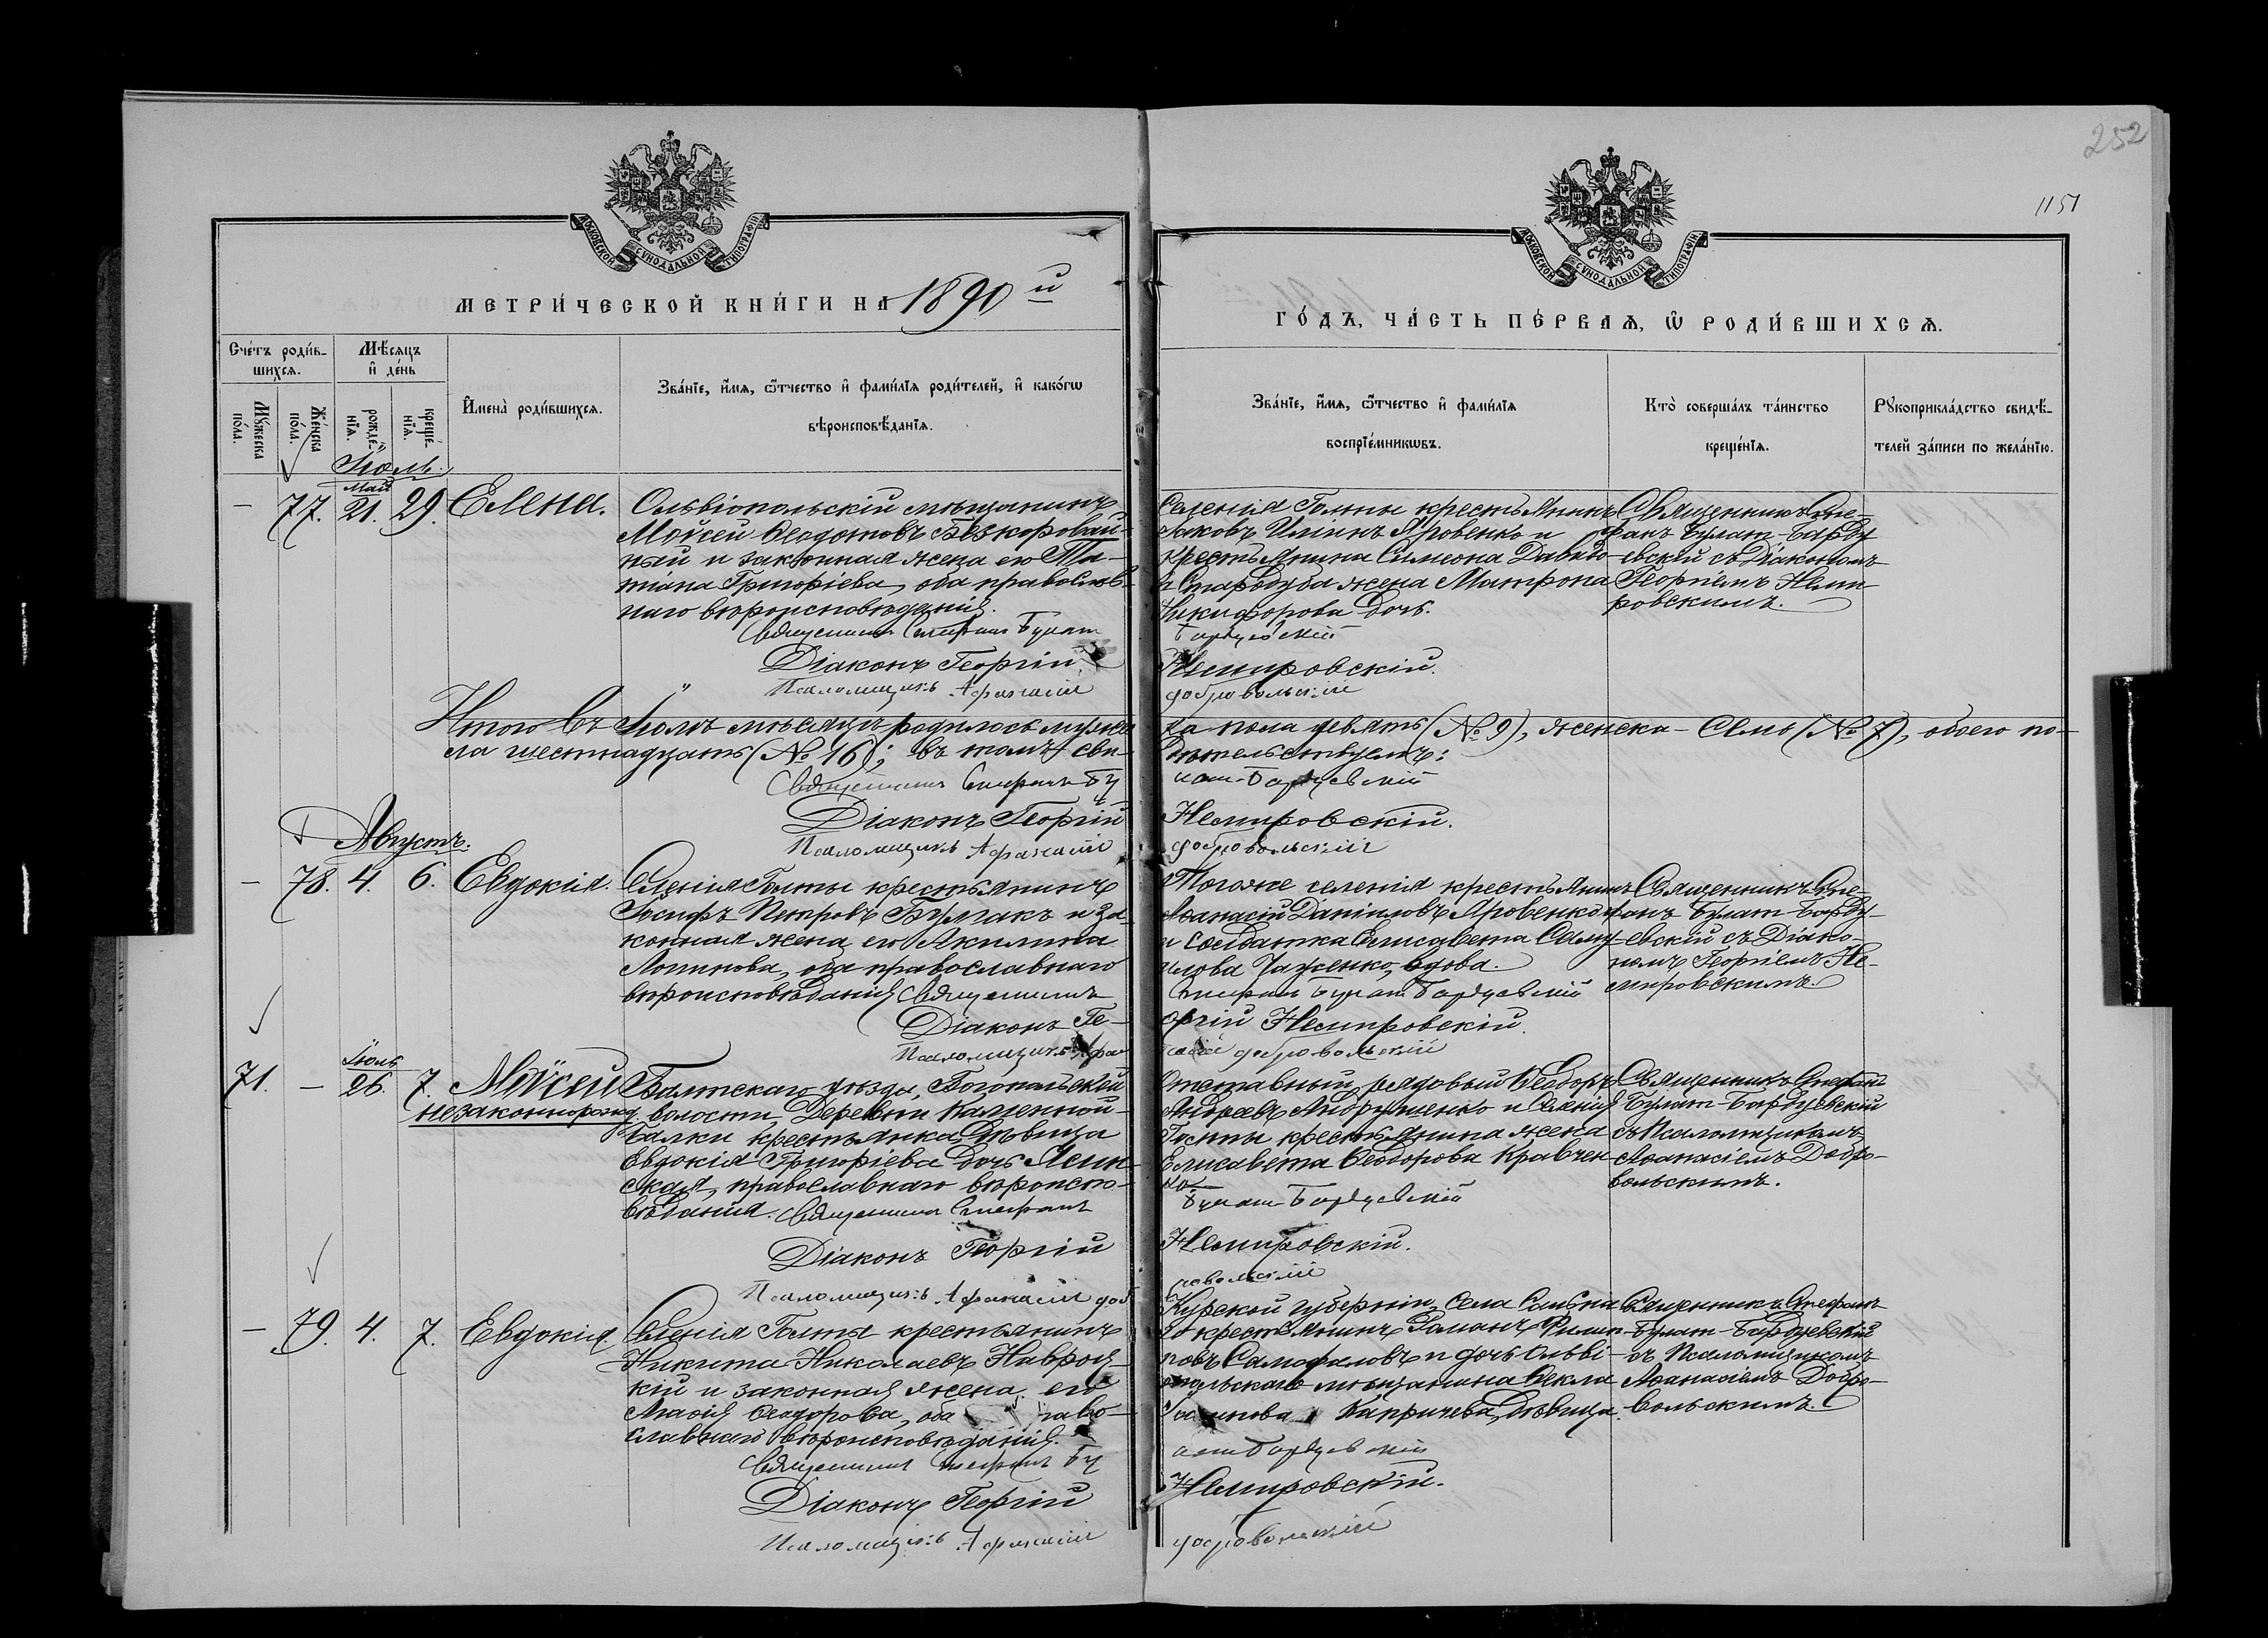 252
1151
МОСКОВСКОЙ СѴНОДАЛЬНОЙ ТИПОГРАФІИ
МОСКОВСКОЙ СѴНОДАЛЬНОЙ ТИПОГРАФІИ
МЕТРИ́ЧЕСКОЙ КНИ́ГИ НА 1890й
ГО́ДЪ, ЧА́СТЬ ПЕ́РВАѦ, Ѿ РОДИ́ВШИХСѦ.
Сче́тъ роди́в-
шихсѧ.
Мѣ́сяцъ
и҆ де́нь
Му́жеска по́ла.
Же́нска по́ла.
рожде́нїѧ.
креще́нїѧ.
И҆мена̀ роди́вшихсѧ.
Зва́нїе, и҆́мѧ, ѻ҆́тчество и҆ фами́лїѧ роди́телей, и҆ како́гѡ
вѣроисповѣ́данїѧ.
Зва́нїе, и҆́мѧ, ѻ҆́тчество и҆ фами́лїѧ
воспрїе́мникѡвъ.
Кто̀ соверша́лъ та́инство
креще́нїѧ.
Рꙋкоприкла́дство свидѣ́-
телей за́писи по жела́нїю.
Іюль.
Май
– 77. 21. 29. Елена.
Ольвіопольскій мѣщанинъ
Мойсей Ѳеодотовъ Безкоровай-
ный и законная жена его Та-
тіана Григоріева, оба православ-
наго вѣроисповѣданія.
Священникъ Стефанъ Булат
Діаконъ Георгій
Псаломщикъ Афанасій
Селенія Голты крестьянинъ
Яковъ Ильинъ Яровенко и
крестьянина Симеона Давидо-
Стародуба жена Матрона
Никифорова дочь.
Бардуевскій
Немировскій.
Добровольскій
Священникъ Сте-
фанъ Булат-Барду
евскій съ Діакономъ
Георгіемъ Неми
ровскимъ.
Итого въ Іюлѣ мѣсяцѣ родилось мужес
ка пола девять (№ 9), женска – семь (№ 7), обоего по-
ла шестнадцать (№ 16); въ томъ сви-
дѣтельствуемъ:
Священникъ Стефанъ Бу
лат-Бардуевскій
Діаконъ Георгій
Немировскій.
Псаломщикъ Афанасій
Добровольскій
Августъ.
– 78. 4. 6. Евдокія.
Селенія Голты крестьянинъ
Іосифъ Петровъ Бурлакъ и за-
конная жена его Акилина
Логинова, оба православнаго
вѣроисповѣданія Священникъ
Діаконъ Ге-
Псаломщикъ Афа
Тогоже селенія крестьянинъ
Аѳанасій Даніиловъ Яровенко
и солдатка Елисавета Саму-
илова вдова.
Стефанъ Булат Бардуевскій
оргій Немировскій.
насій Добровольскій
Священникъ Сте-
фанъ Булат-Барду-
евскій съ Діако-
номъ Георгіемъ Не-
мировскимъ.
Іюль
71. – 26. 7. Мойсей
незаконнорожд.
Балтскаго уѣзда, Богопольской
волости, деревни Каменной-
Балки крестьянка, Дѣвица
Евдокія Григоріева дочь Ясин-
ская, православнаго вѣроиспо-
вѣданія. Священникъ Стефанъ
Діаконъ Георгій
Псаломщикъ Афанасій Доб
Отставный рядовый Ѳеодоръ
Андреевъ Андрущенко и Селенія
Голты крестьянина жена
Елисавета Ѳеодорова Кравчен
ко.
Булат Бардуевскій
Немировскій.
ровольскій
Священникъ Стефанъ
Булат-Бардуевскій
съ Псаломщикомъ
Аѳанасіемъ Добро-
вольскимъ.
– 79. 4. 7. Евдокія.
Селенія Голты крестьянинъ
Никита Николаевъ Навроц-
кій и законная жена его
Марія Ѳеодорова, оба право-
славнаго вѣроисповѣданія.
Священникъ Стефанъ Бу
Діаконъ Георгій
Псаломщикъ Афанасій
Курской губерніи, села
крестьянинъ Романъ Филип-
повъ Самофаловъ и дочь Ольві-
опольскаго мѣщанина Ѳекла
Капричева, дѣвица.
лат Бардуевскій
Немировскій.
Добровольскій
Священникъ Стефанъ
Булат-Бардуевскій
съ Псаломщикомъ
Аѳанасіемъ Добро-
вольскимъ.